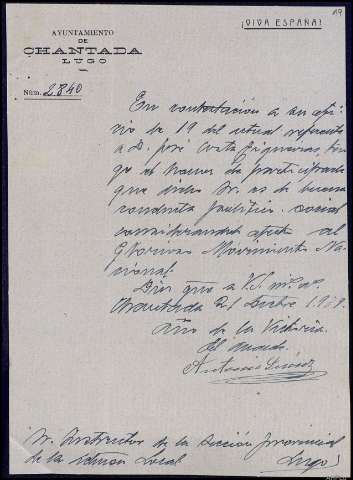 19
¡VIVA ESPAÑA!
AYUNTAMIENTO
DE
CHANTADA
LUGO
Núm. 2840
En contestación a su ofi-
cio de 19 del actual referente
a D. José Costa Figueiras, ten-
go el honor de participarle
que dicho Sr. es de buena
conducta politico social
considerandole afecto al
Glorioso Movimiento Na-
cional.
Dios gue a V.S. ms. as.
Chantada 21 1939.
Año de la Victoria.
El Alcalde
Antonio
Sr. Instructor de la Sección provincial
de la Local Lugo